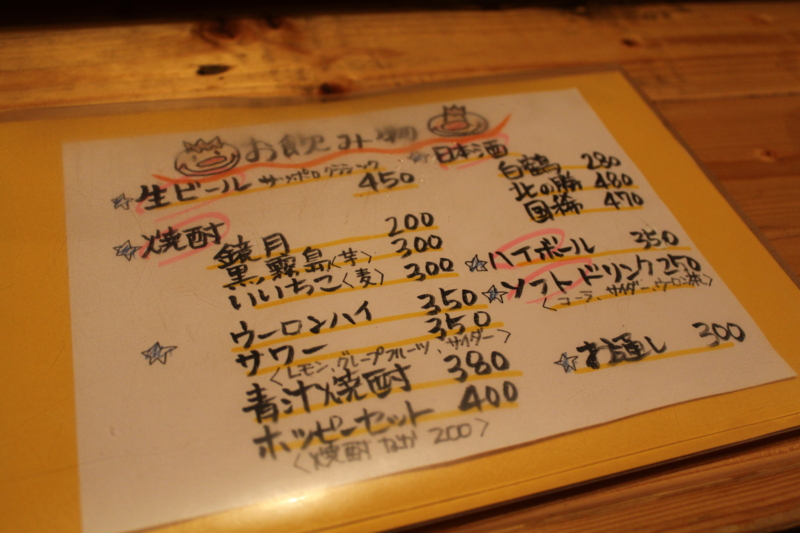 お飲み物
☆生ビール サッポロクラシック 450
☆焼酎
鏡月 200
黒霧島〈芋〉 300
いいちこ〈麦〉 300
☆
ウーロンハイ 350
サワー 350
〈レモン、グレープフルーツ、サイダー〉
青汁焼酎 380
ホッピーセット 400
〈焼酎なか 200〉
☆日本酒
白鶴 280
北の勝 480
国稀 470
☆ハイボール 350
☆ソフトドリンク 250
〈コーラ、サイダー、ウーロン茶〉
☆お通し 300